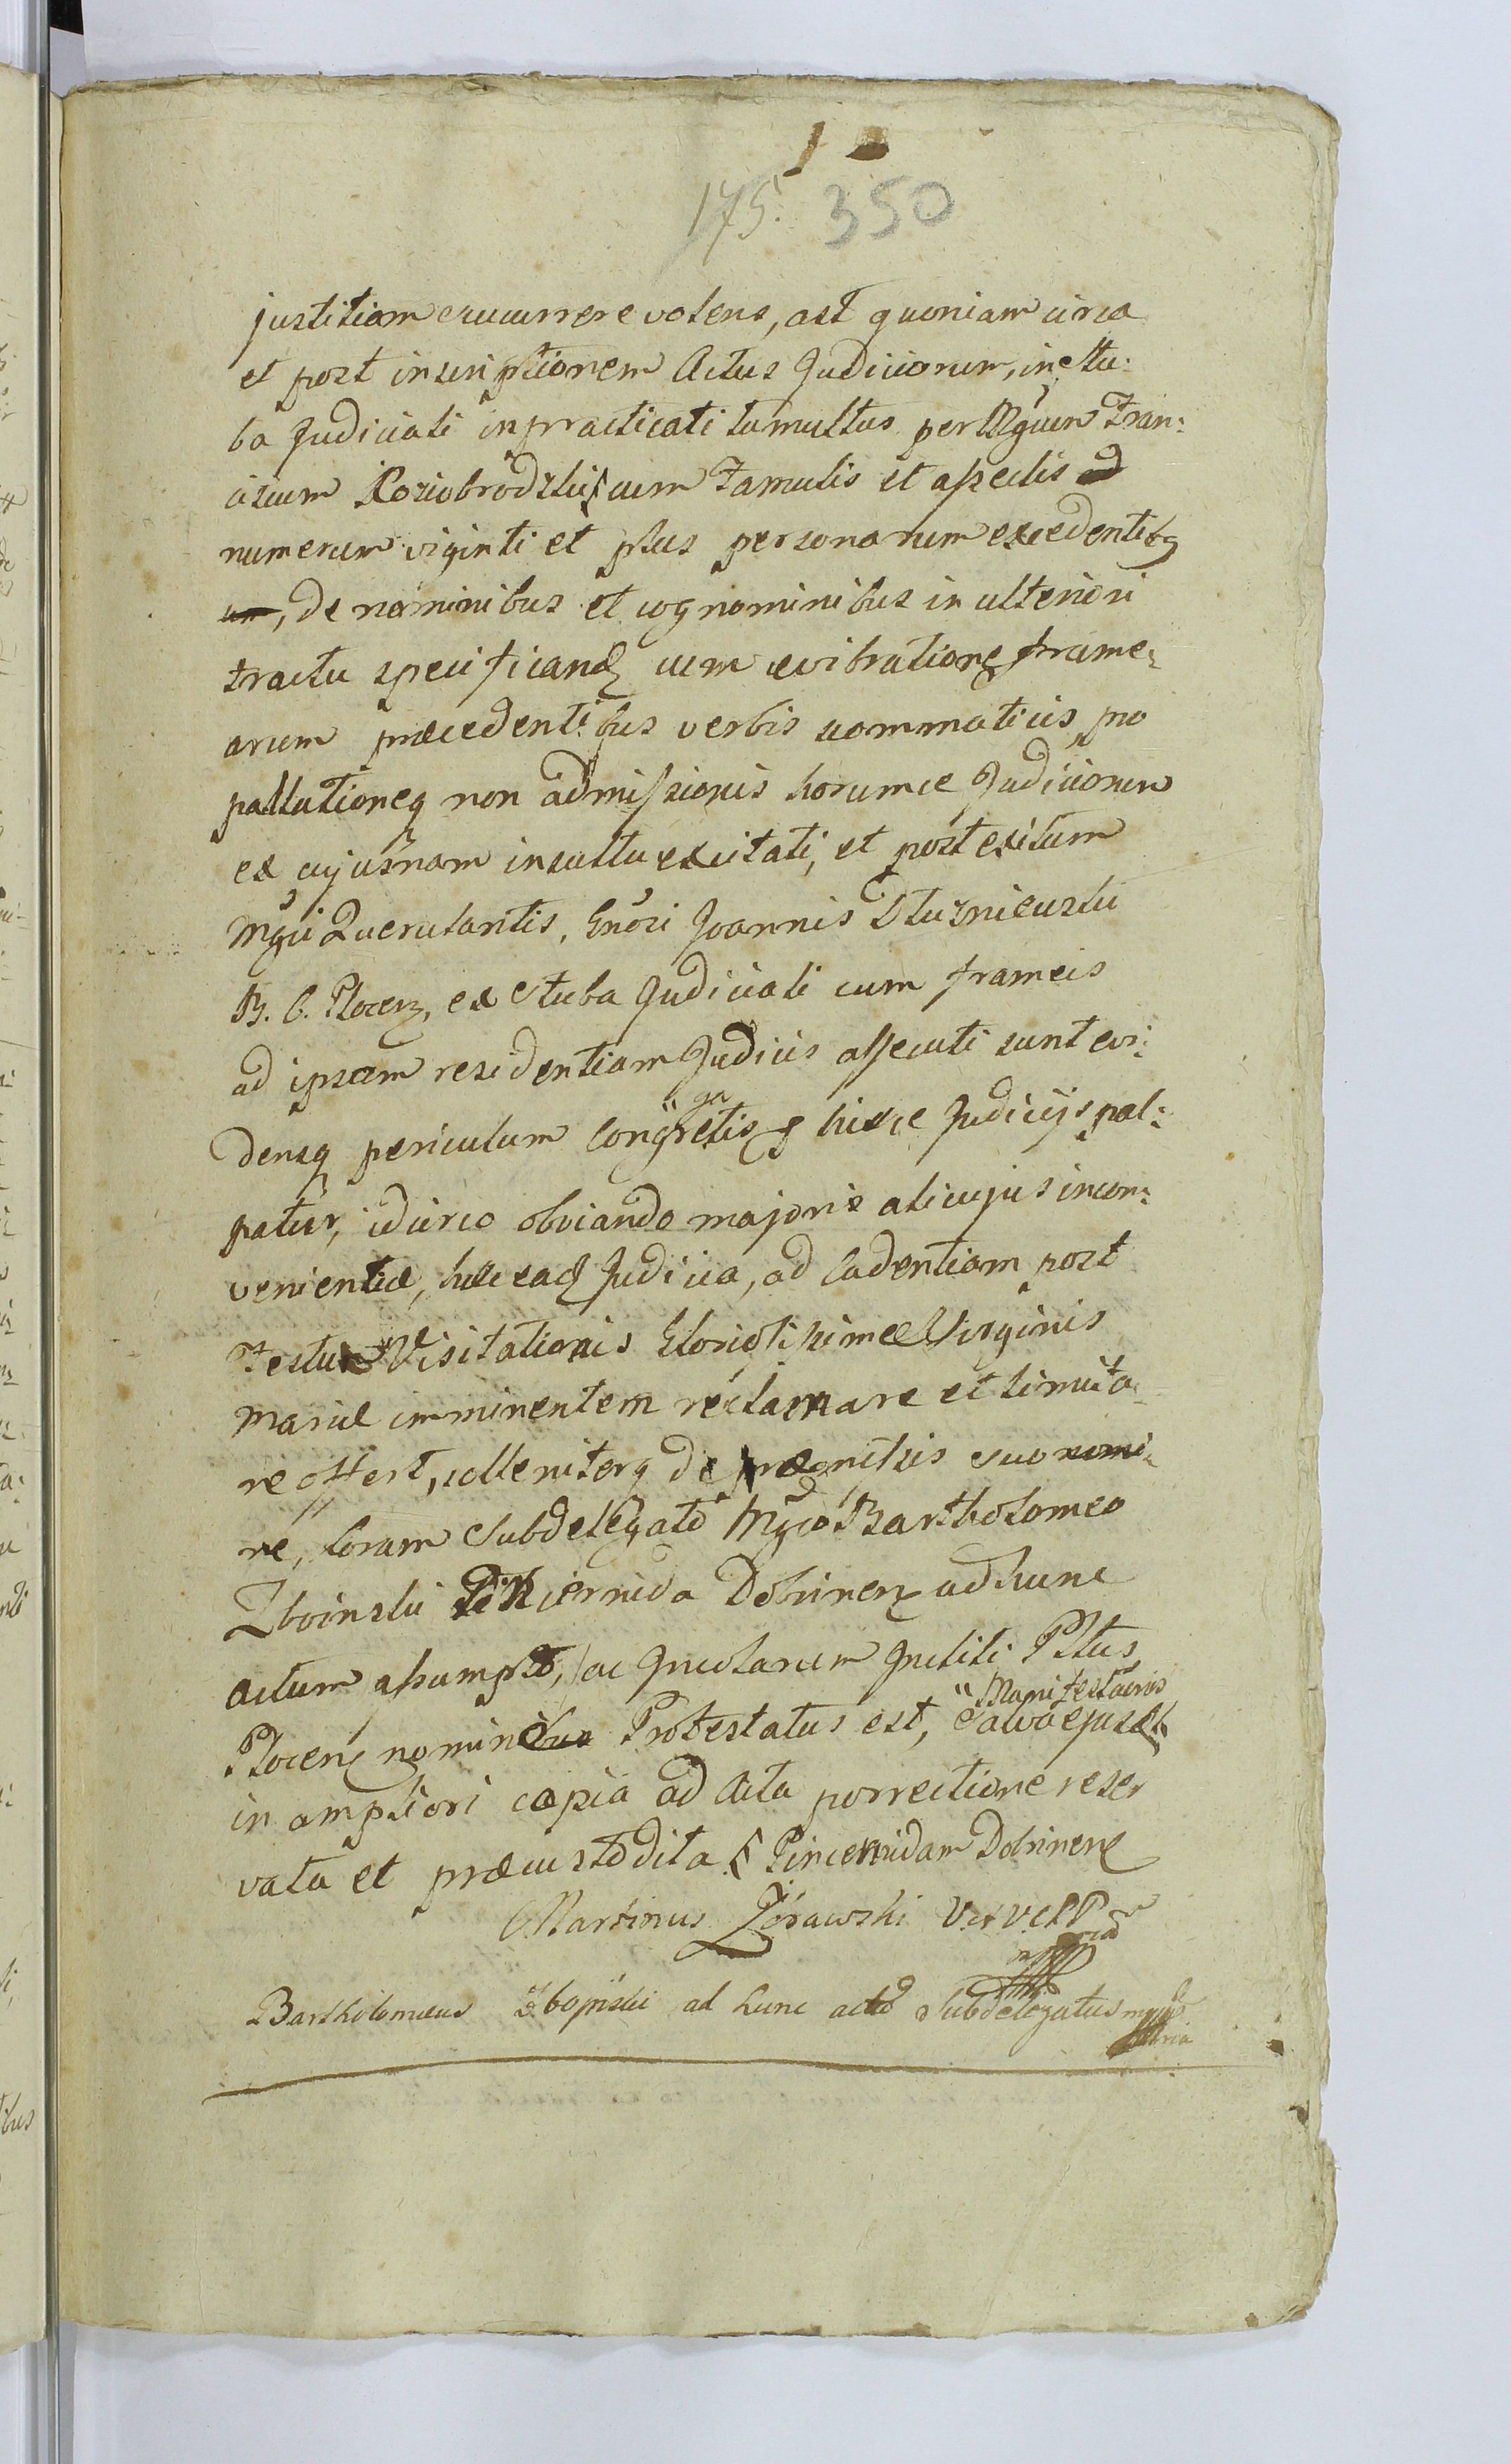 175. 350
justitiam excurrere volens, ast quoniam circa
et post inscriptionem Actus Judiciorum, in stu:
ba Judiciali inpracticati tumultus per Mgcum Fran:
ciscum Koziobrodzki cum Famulis et asseclis
numerum viginti et plus personarum excedentibq
de nominibus et cognominibus in ulteriori
tractu specificand cum evibratione frame:
arum præcedentibus verbis commaticis, pro
pallationeq non admissionis horumce Judiciorum
ex cujusnam insultu excitati, et post exitum
Mgci Querulantis, Gnosi Joannis Dłużniewski
B. C. Plocen, ex Stuba Judiciali cum frameis
ad ipsam residentiam Judicis assecuti sunt evi:
densq periculum Congregatis hisce Judicijs pal:
patur, idcirco obviando majoris alicujus incon:
venientiæ, hæc ead Judicia, ad Cadentiam post
Festum Visitationis Gloriosissimæ Virginis
Mariæ imminentem reclamare et limita
re offert, solleniterq de præmissis suo nomi:
ne, Coram Subdelegato Mgco Bartholomeo
Zboinski Pincernida Dobrinen ad hunc
actum assumpto, ac Incolarum Inclili Pltus,
Plocen nomine Protestatus est, Salva ejusd Manifestaonis
in ampliori copia ad Acta porrectione reser
vata et præcustodita Pincernidam Dobrinen
Martinus Żórawski
Bartholomæus Zboiński ad hunc actu Subdelegatus mppria